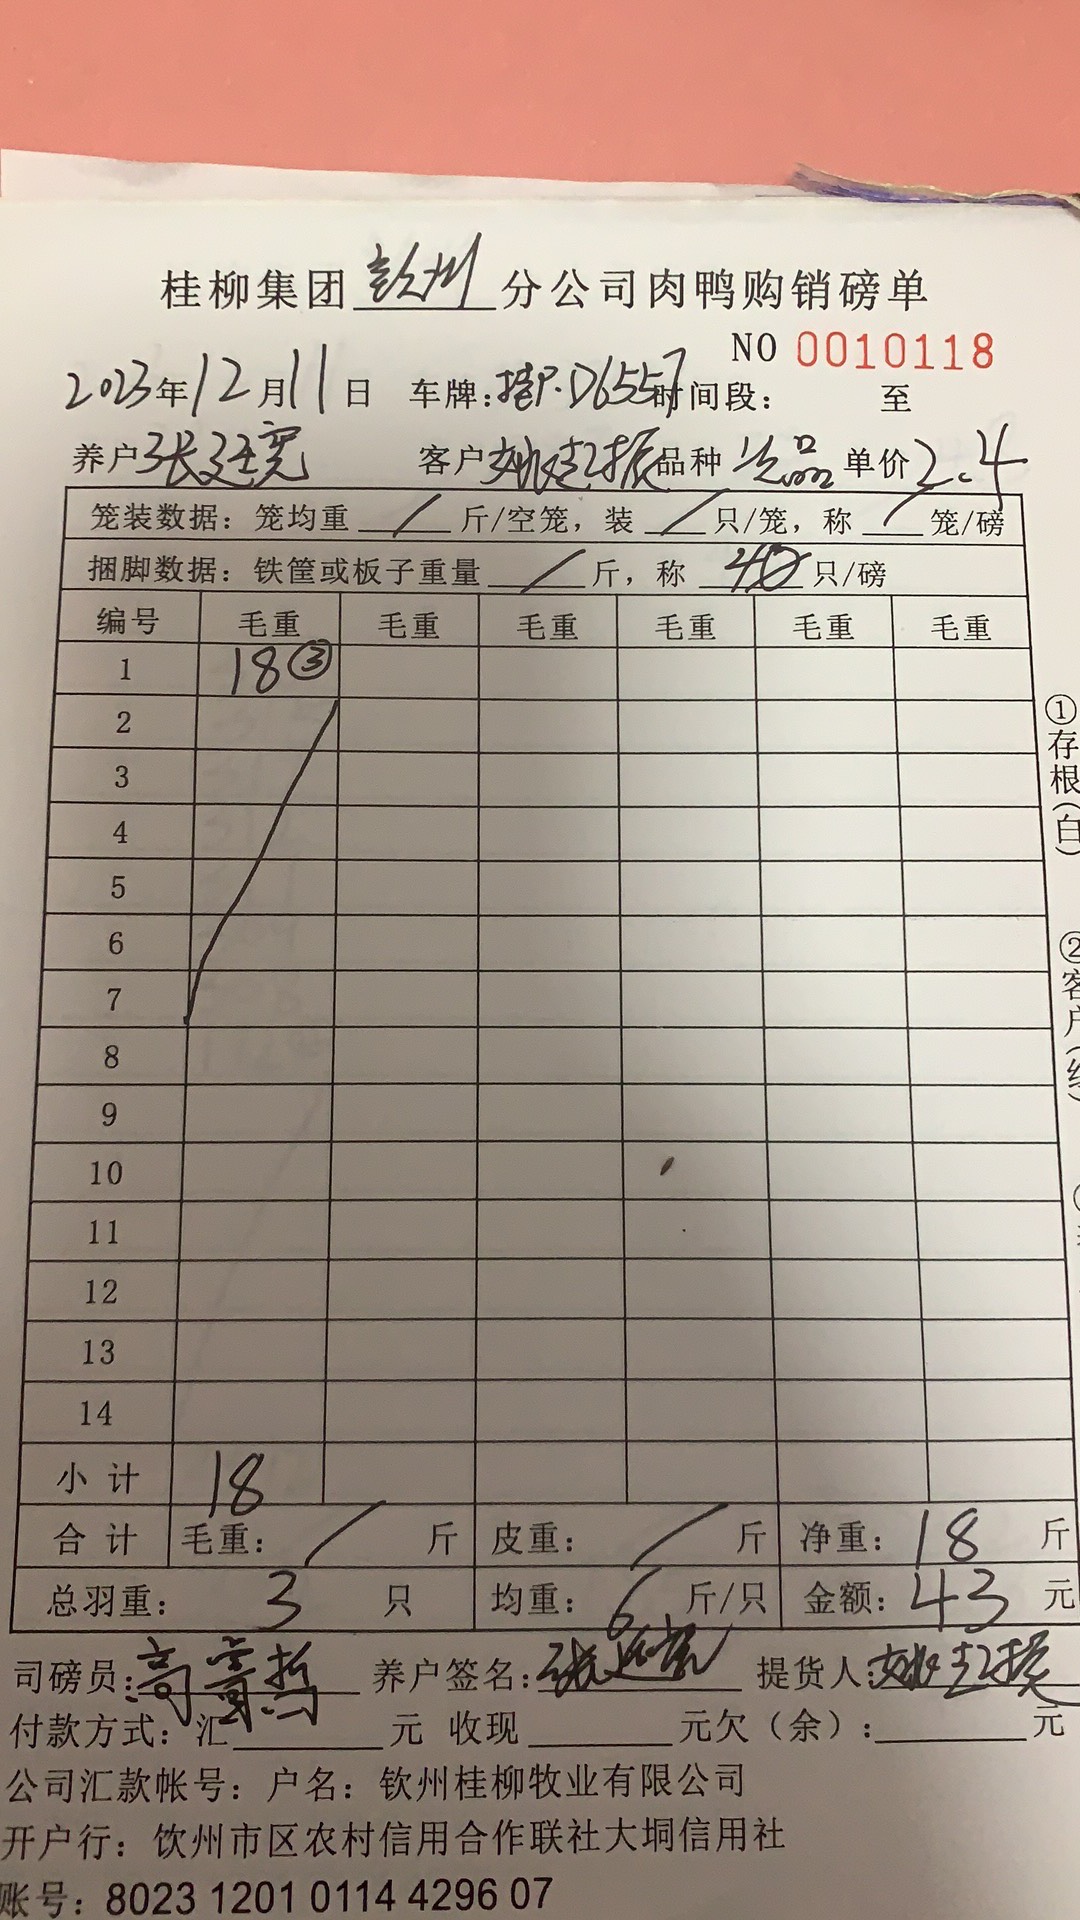 桂柳集团钦州分公司肉鸭购销磅单
NO 0010118
2023年12月11日 车牌:桂P·D6557 时间段: 至
养户 张廷宽 客户 姚 振 品种 次品 单价 2.4
笼装数据:笼均重 / 斤/空笼,装 / 只/笼,称 / 笼/磅
捆脚数据:铁筐或板子重量 / 斤,称 40 只/磅
编号 毛重 毛重 毛重 毛重 毛重 毛重
1 18③
2
3
4
5
6
7
8
9
10
11
12
13
14
小计 18
合计 毛重: / 斤 皮重: / 斤 净重: 18 斤
总羽重: 3 只 均重: 6 斤/只 金额: 43 元
司磅员: 高 哲 养户签名: 张廷宽 提货人: 姚 振
付款方式:汇 元 收现 元欠(余): 元
公司汇款帐号:户名:钦州桂柳牧业有限公司
开户行:饮州市区农村信用合作联社大垌信用社
账号:8023 1201 0114 4296 07
①存根(白)
②客户(红)